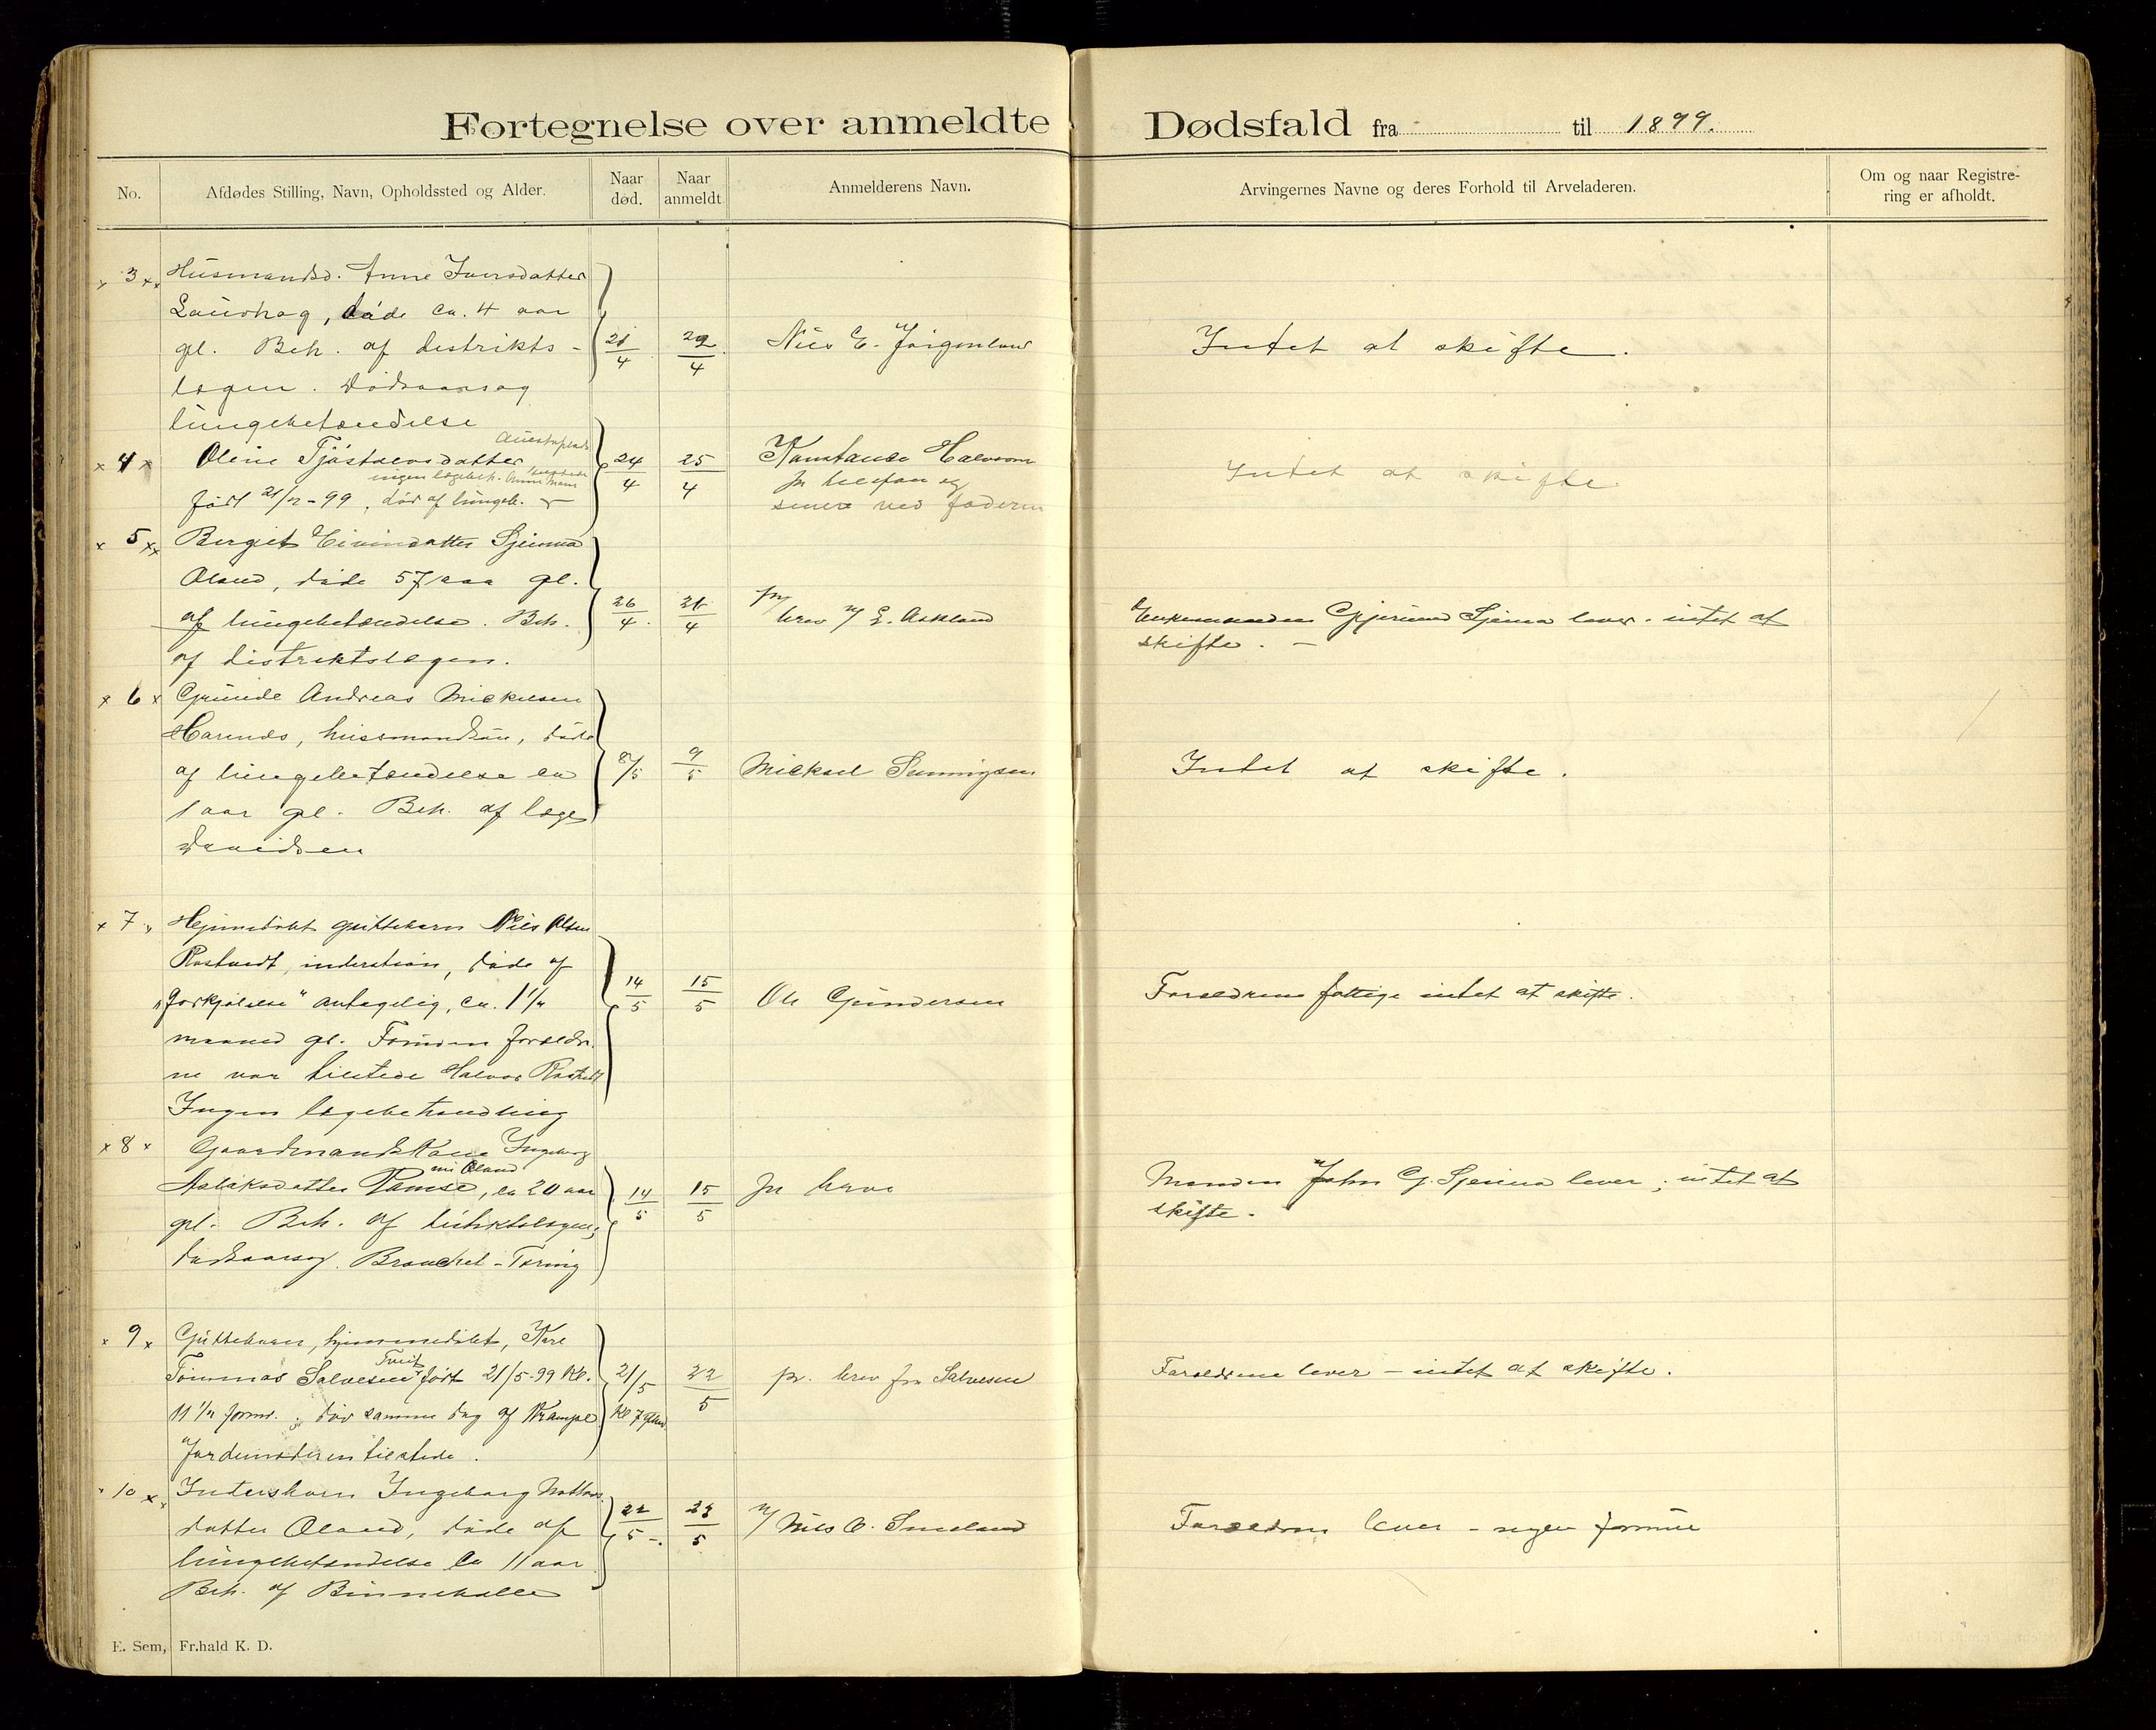 Fortegnelse over anmeldte Dødsfald fra til 1899.
No.
Afdødes Stilling, Navn, Opholdssted og Alder.
Naar død.
Naar anmeldt
Anmelderens Navn.
Arvingernes Navne og deres Forhold til Arveladeren.
Om og naar Registre-
ring er afholdt.
3 Husmandsd. Anne Iversdatter
døde ca. 4 aar
gl. Beh. af destrikts-
lægen. Dødsaarsag
lungebetændelse
21/4
29/4
Nils E.
Intet at skifte.
4 Oline Tjøstolvsdatter
ingen lægebeh.
født 21/2-99, dør af lungeb.
24/4
25/4
Konstance Halvorsen
pr telefon og
senere ved faderen
Intet at skifte.
5 Bergit Eivindatter Sjeima
Øland, døde 57 aar gl.
af lungebetændelse. Beh.
af distriktslægen.
26/4
pr
brev v/ E. Askland
Enkemanden Gjerund Sjeima lever. intet at
skifte. -
6 Gunde Andreas Mickelsen
husmandssøn, døde
af lungebetændelse ca
1 aar gl. Beh. af læge
Davidsen
8/5
9/5
Mickael
Intet at skifte.
7 Hjemedøbt guttebarn Nils Olsen
Rostvedt, inderstsøn, døde af
"forkjølelse" antagelig, ca. 1 1/2
maaned gl. Foruden forældre-
ne var tilstede Halvor Rostvedt
Ingen lægebehandling
14/5
15/5
Ole Gundersen
Forældrene fattige intet at skifte.
8 Gaardmandskone Ingeborg
Aslaksdatter Ramse, ca 20 aar
Øland
gl. Beh. af
dødsaarsag. Bronchel-Tæring
14/5
15/5
pr brev
Manden John G. Sjeima lever; intet at
skifte.
9 Guttebarn, hjemmedøbt, Kare
Tommas Salvesen Tveit født 21/5-99 Kl.
11 1/2 form.; dør samme dag af Krampe
Jordemoderen tilstede.
21/5
Kl 7 efterm.
22/5
pr. brev fra Salvesen
Forældrene lever - intet at skifte.
10 Inderstbarn Ingeborg
datter Øland, døde af
lungebetændelse ca 11 aar
Beh. af Binneballe
22/5
23/5
v/ Nils O. Smeland
Forældrene lever - ingen formue
E. Sem, Fr.hald K. D.